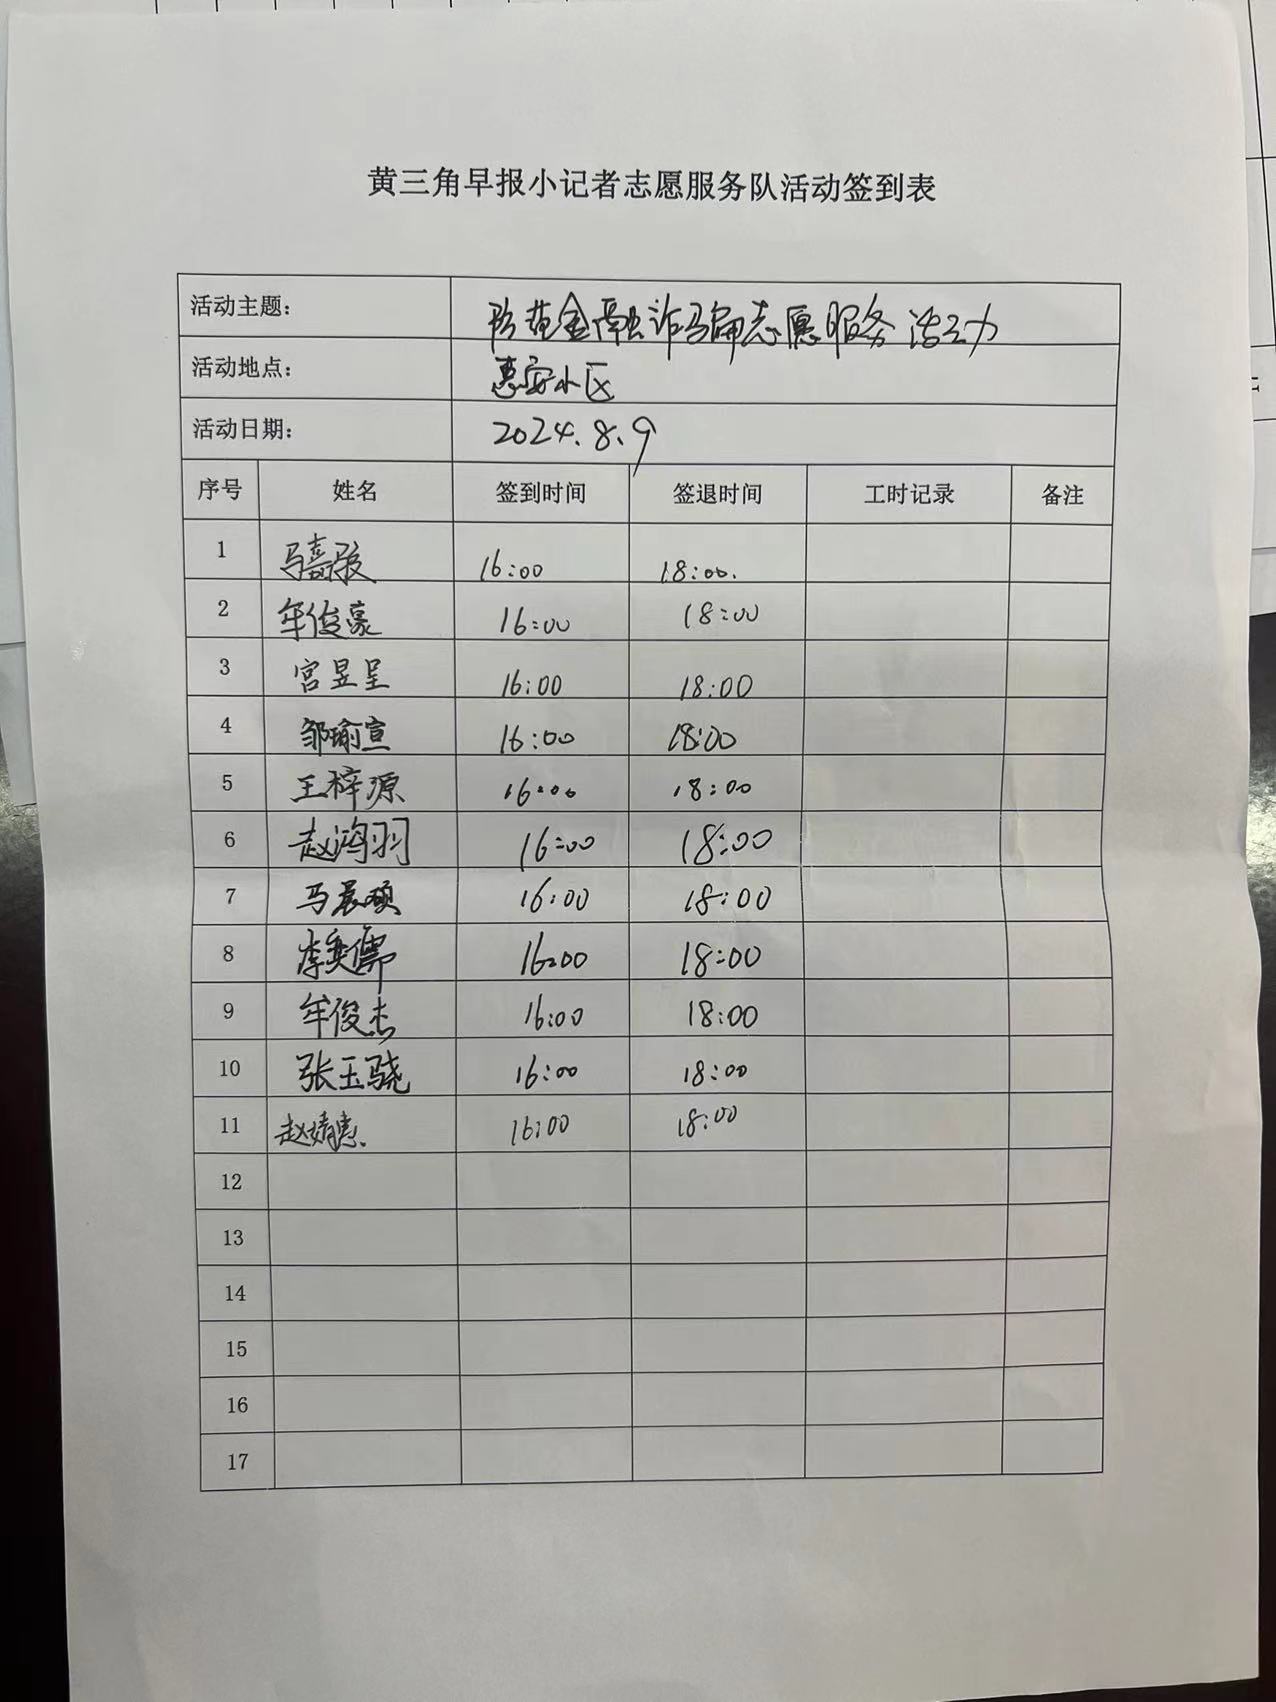 黄三角早报小记者志愿服务队活动签到表
活动主题： 防范金融诈骗志愿服务活动
活动地点： 惠安小区
活动日期： 2024.8.9
序号 姓名 签到时间 签退时间 工时记录 备注
1 16:00 18:00.
2 牟俊豪 16:00 18:00
3 宫昱呈 16:00 18:00
4 邹瑜宣 16:00 18:00
5 王梓源 16:00 18:00
6 赵鸿羽 16:00 18:00
7 马晨硕 16:00 18:00
8 李奕儒 16:00 18:00
9 牟俊杰 16:00 18:00
10 张玉骁 16:00 18:00
11 赵婧惠. 16:00 18:00
12
13
14
15
16
17